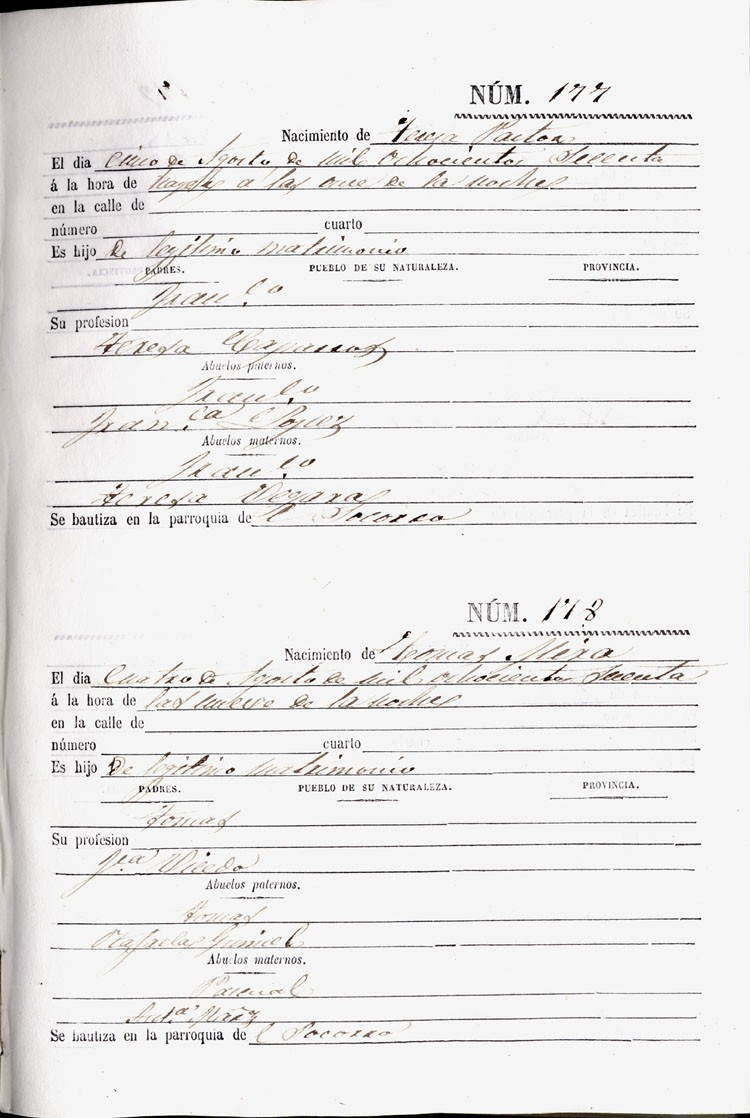 NÚM. 177
Nacimiento de Teresa Pastor
El dia cinco de Agosto de mil ochocientos Secenta
á la hora de a las once de la noche
en la calle de
número cuarto
Es hijo de legitimo matrimonio
PADRES. PUEBLO DE SU NATURALEZA. PROVINCIA.
Fran.co
Su profesion
Teresa
Abuelos paternos.
Fran.co
Fran.ca Lopez
Abuelos maternos.
Fran.co
Teresa Vegara
Se bautiza en la parroquia de l Socorro
NÚM. 178
Nacimiento de Thomas Mira
El dia Cuatro de Agosto de mil ochocientos Secenta
á la hora de las nueve de la noche
en la calle de
número cuarto
Es hijo De legitimo matrimonio
PADRES. PUEBLO DE SU NATURALEZA. PROVINCIA.
Tomas
Su profesion
Jfa Vicedo
Abuelos paternos.
Tomas
Rafaela
Abuelos maternos.
Pascual
Se bautiza en la parroquia de l Socorro